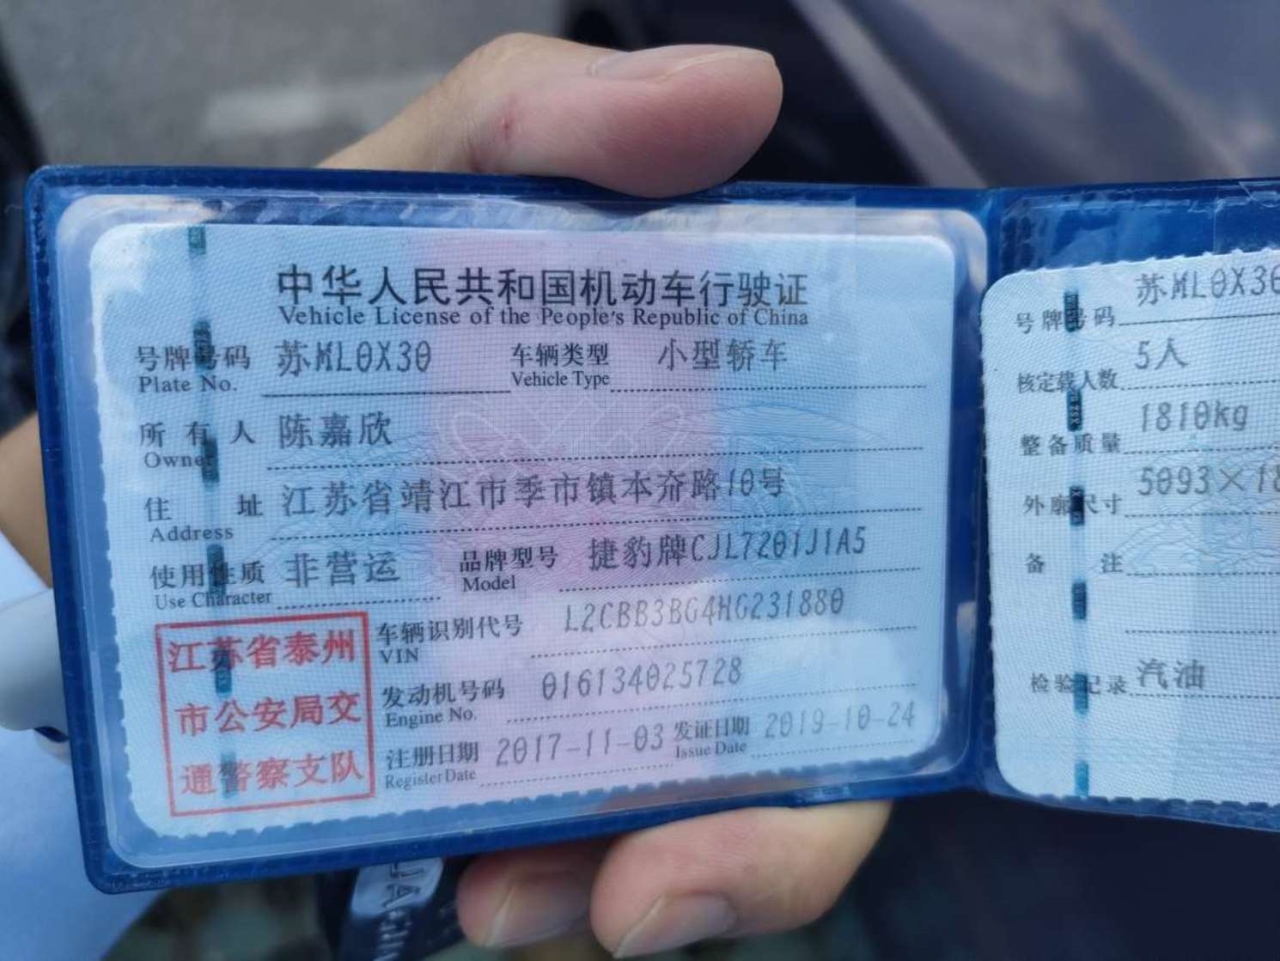 中华人民共和国机动车行驶证
Vehicle License of the People's Republic of China
号牌号码 苏ML0X30 车辆类型 小型轿车
Plate No. Vehicle Type
所有人 陈嘉欣
Owner
住址 江苏省靖江市季市镇本夼路10号
Address
使用性质 非营运 品牌型号 捷豹牌CJL7201J1A5
Use Character Model
车辆识别代号 L2CBB3BG4HG231880
VIN
发动机号码 016134025728
Engine No.
注册日期 2017-11-03 发证日期 2019-10-24
Register Date Issue Date
江苏省泰州
市公安局交
通警察支队
号牌号码 苏ML0X30
核定载人数 5人
整备质量 1810kg
外廓尺寸 5093×18
备注
检验记录 汽油